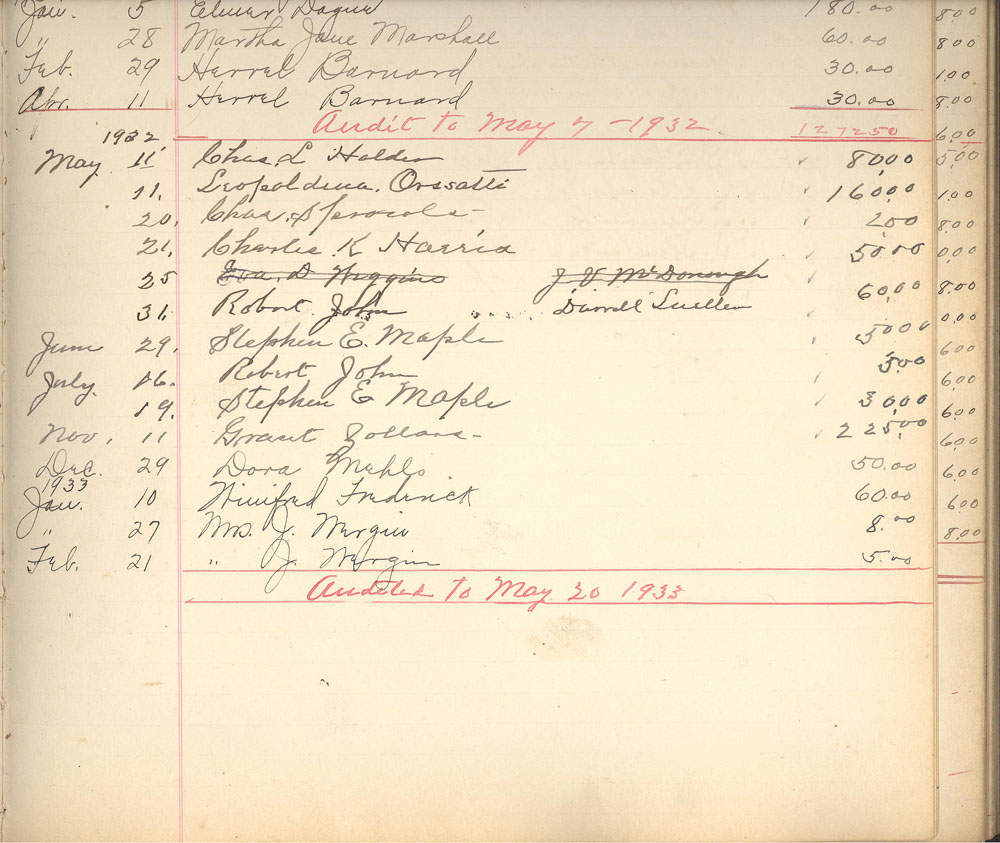 Jan. 5 Elmer Dague 180.00
" 28 Martha Jane Marshall 60.00
Feb. 29 Herrel Barnard 30.00
Apr. 11 Herrel Barnard 30.00
Audit to May 7-1932. 1272 50
1932
May 11 Chas. L Holden 80,00
11. Leopoldina Orssatti 160,00
20. Chas. 2,00
21. Charles K Harris 50.00
25 Eva. D Wiggins J V McDonough 60,00
31. Robert John Darrell Luellen
June 29. Stephen E. Maple 50 00
July. 16. Robert John 5,00
19. Stephen E Maple 30,00
Nov. 11 Grant Zollars- 225,00
Dec. 29 Dora Mehls 50.00
1933
Jan. 10 Winifred Frederick 60.00
" 27 Mrs. J. Wergin 8.00
Feb. 21 " J. Wergin 5.00
Audited to May 20 1933
8.00
8.00
1.00
8.00
6.00
5,00
1.00
8.00
0,00
8.00
0,00
6.00
6.00
6.00
6.00
6.00
6.00
8.00